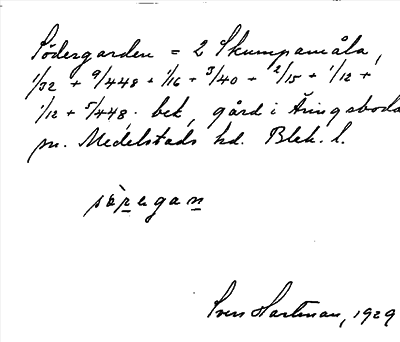 Södergården = 2 Skumpamåla,
1/32 + 9/448 + 1/16 + 3/40 + 2/15 + 1/12 +
1/12 + 5/448. bek, gård i Åryngsboda
sn. Medelstads hd. Blek. l.
Sven Hartman, 1929